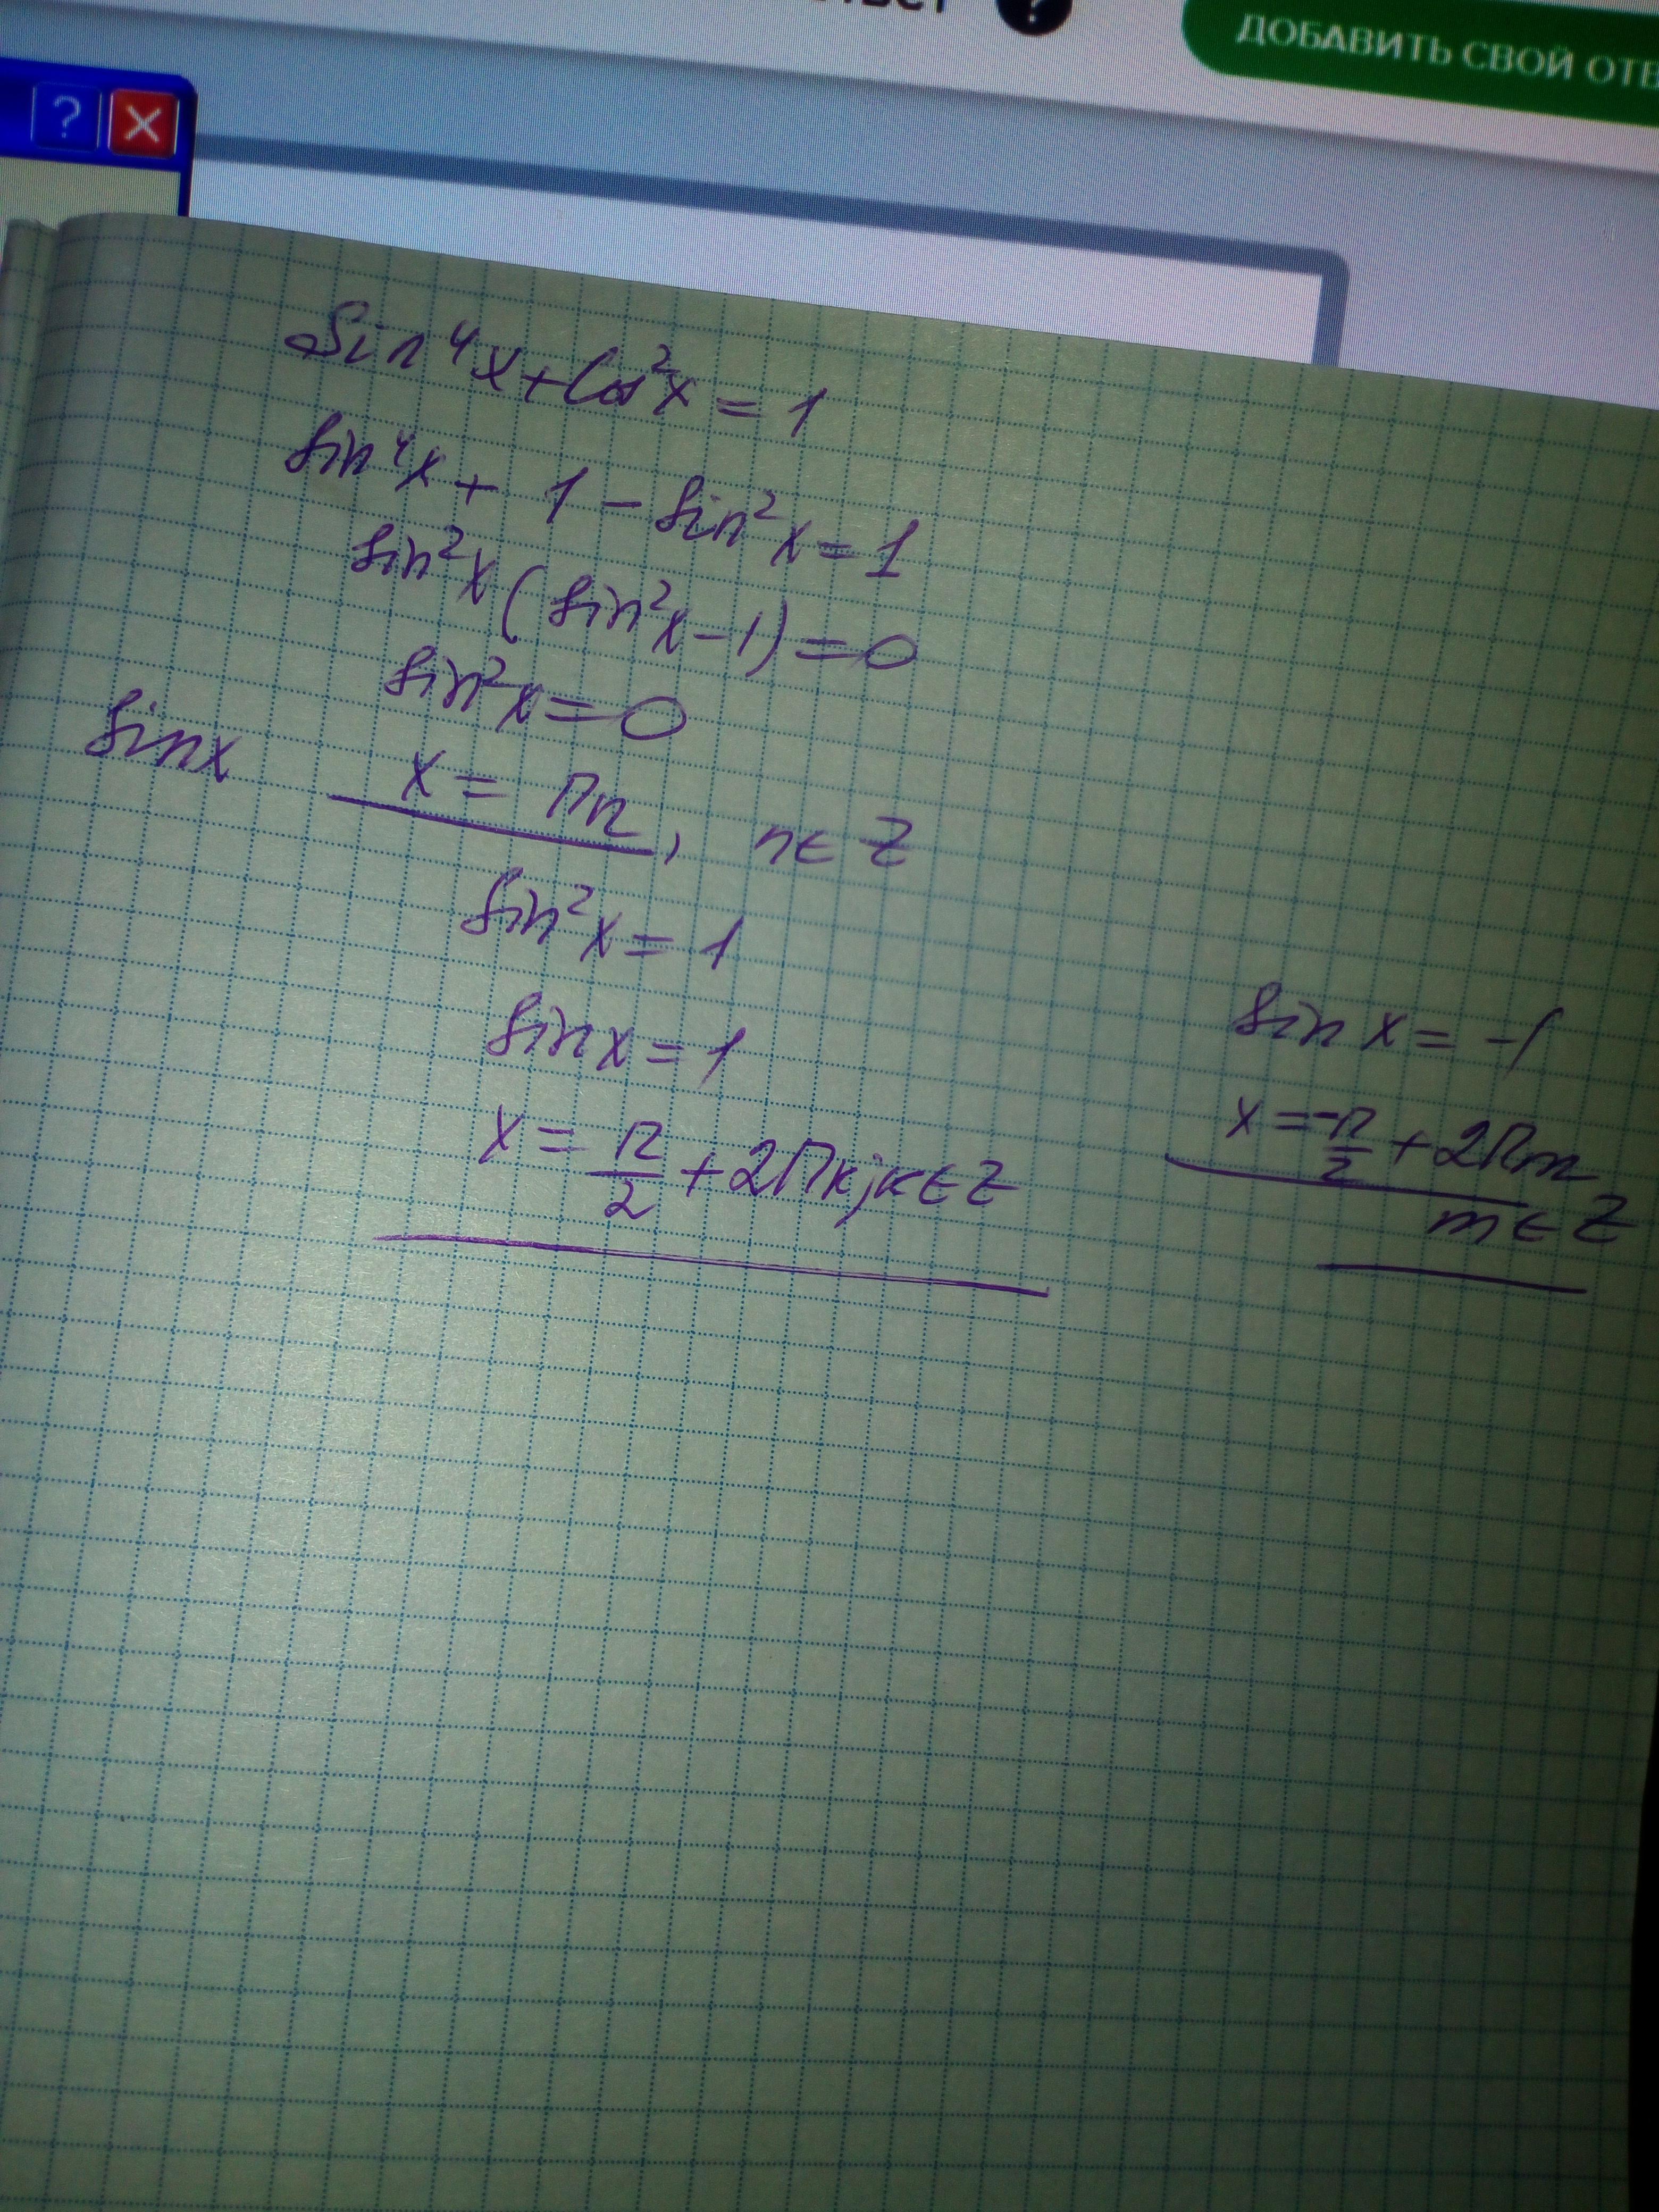 ?
ДОБАВИТЬ СВОЙ ОТВ
?
Sin⁴x + Cos²x = 1
sin⁴x + 1 − sin²x = 1
sin²x (sin²x − 1) = 0
sin²x = 0
sinx
x = πn, n ∈ Z
sin²x = 1
sin x = 1
sin x = −1
x = π/2 + 2πk; k ∈ Z
x = −π/2 + 2πm
m ∈ Z